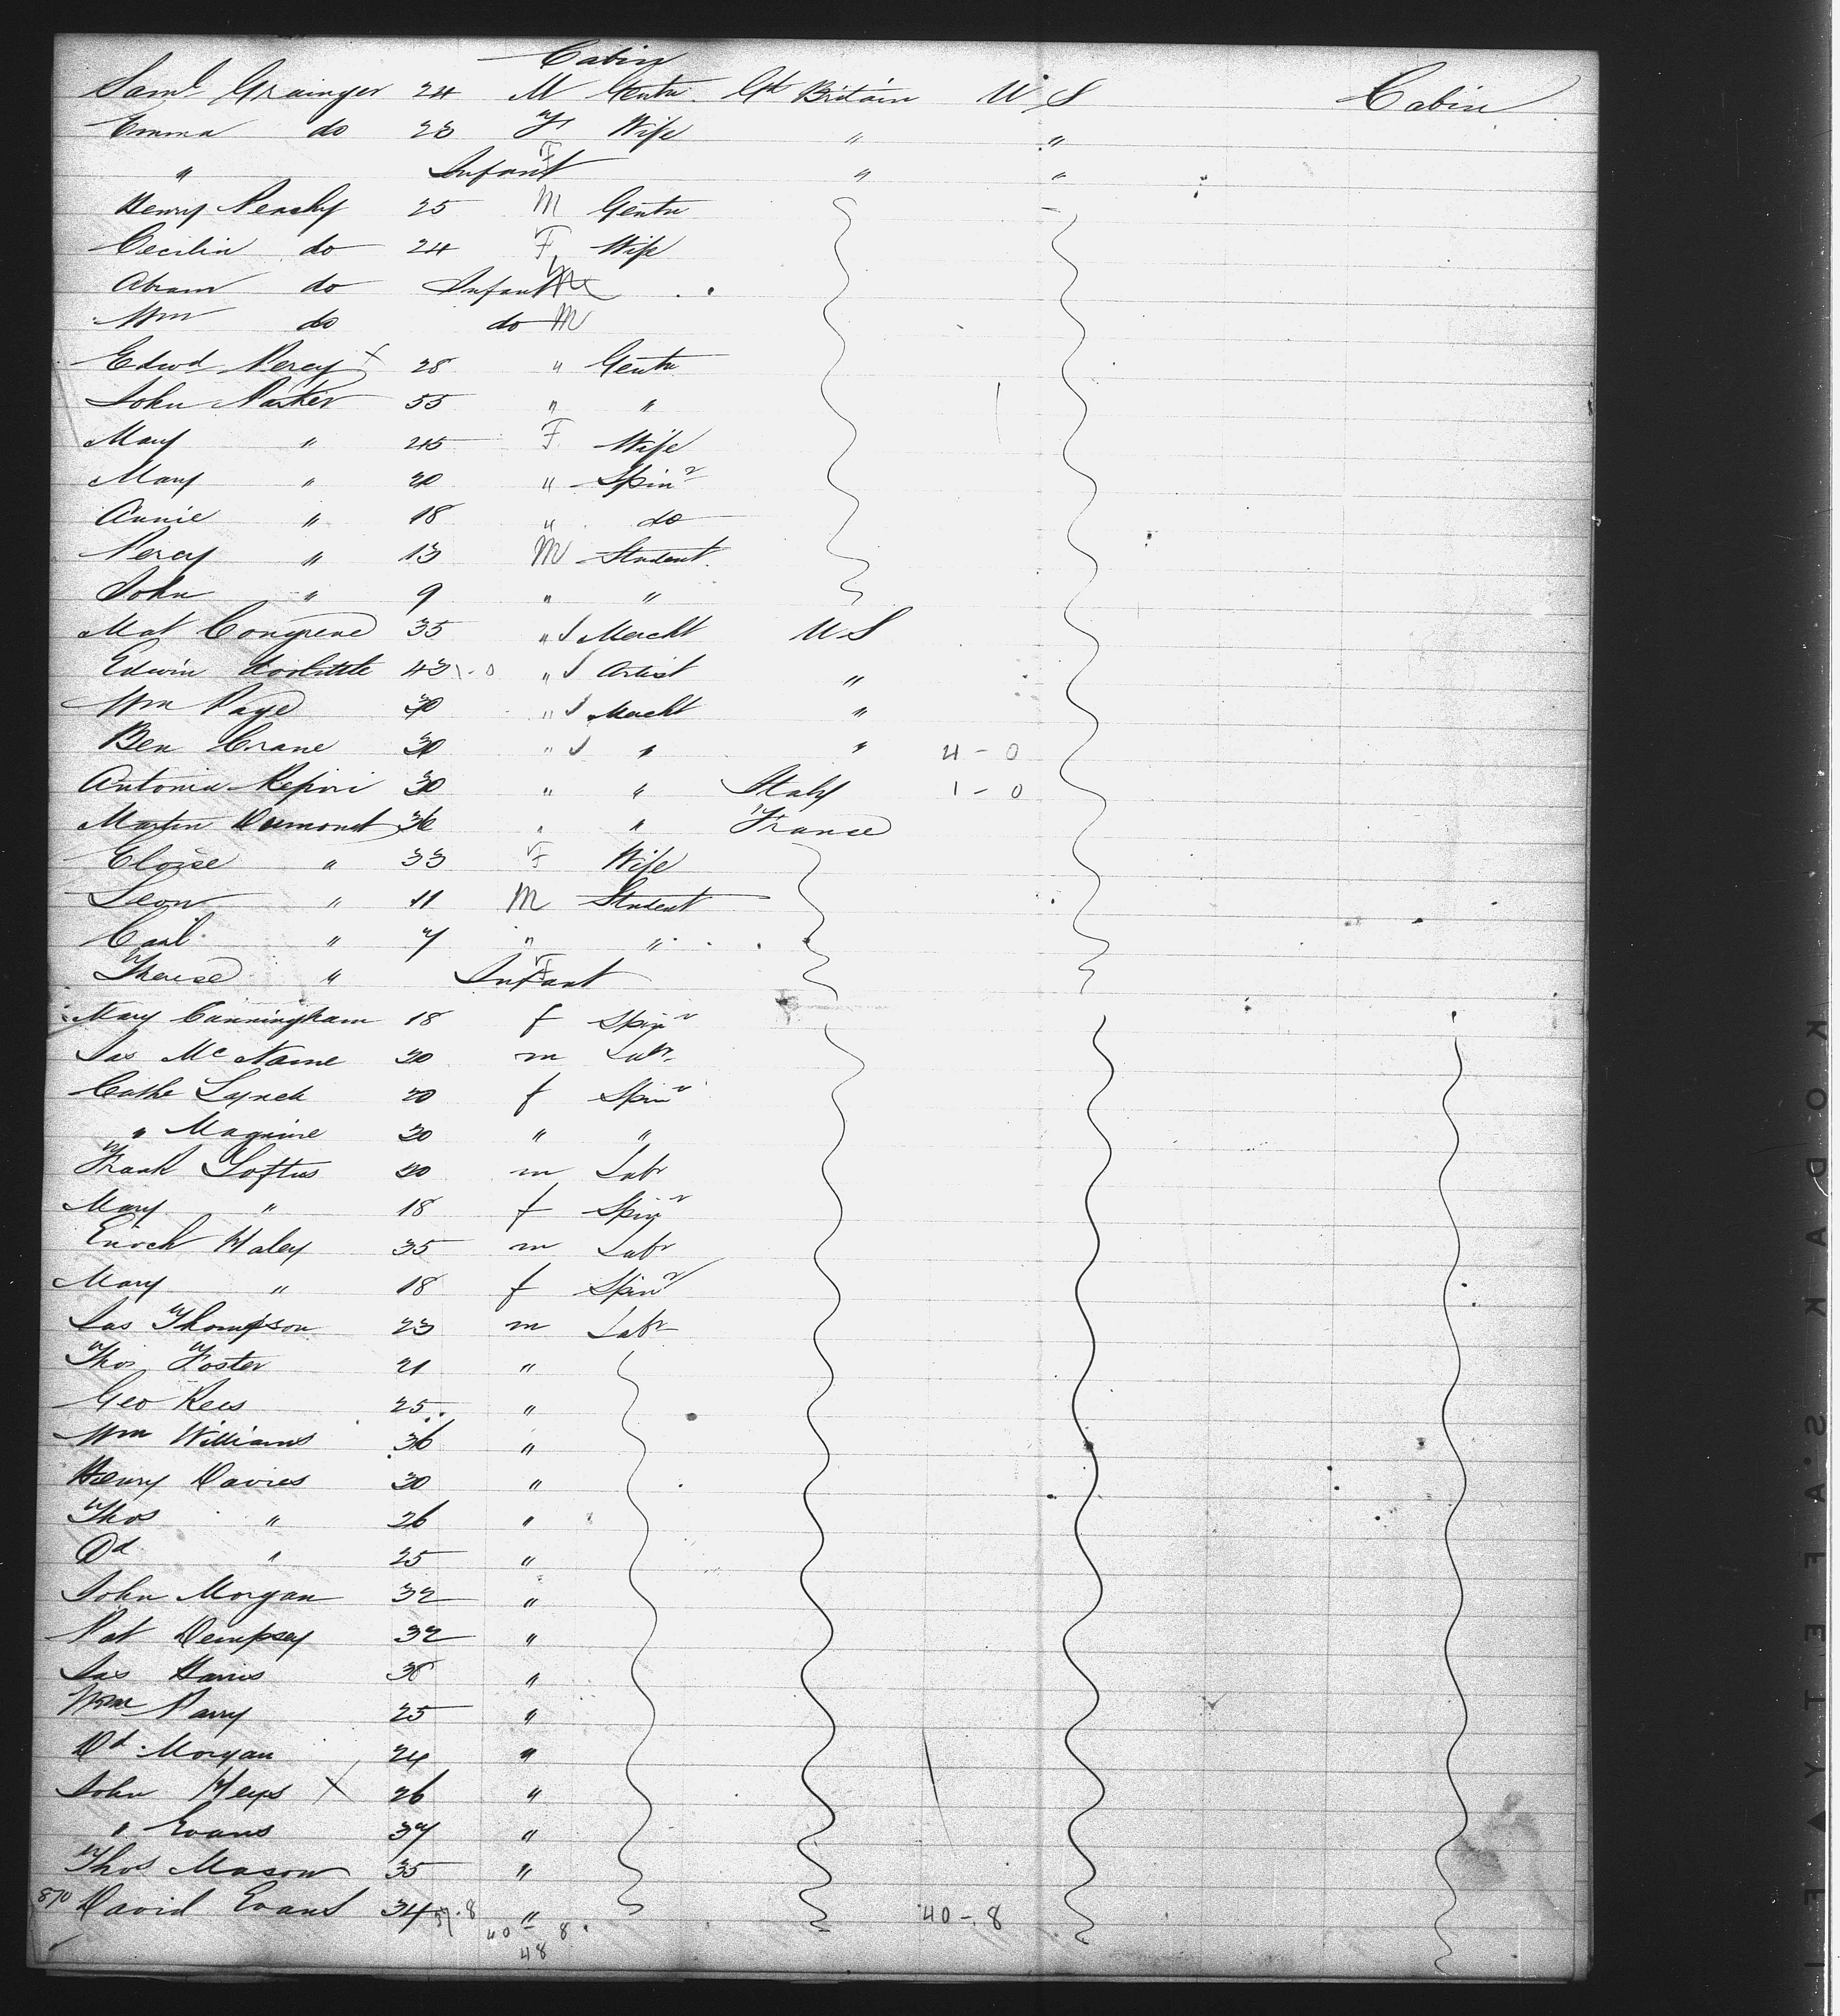 Cabin
Saml Grainger 24 M Gentn Gt Britain U S Cabin
Emma do 23 F Wife " "
" Infant F " "
Henry Peachy 25 M Gentn
Cecilia do 24 F Wife
Abram do Infant M
Wm do do M
Edwd Percy X 28 " Gentn
John Parker 55 " "
Mary " 45 F Wife
Mary " 20 " Spinr
Annie " 18 " do
Percy " 13 M Student
John " 9 " "
Mat Congreve 35 " Mercht U S
Edwin doolittle 43 " Artist "
Wm Page 30 " Mercht "
Ben Crane 30 " " " 4-0
Antonia Repiri 30 " " Italy 1-0
Martin Dumont 36 " " France
Eloise " 33 F Wife
Leon " 11 M Student
Carl " 7 " "
Therese " Infant F
Mary Cunningham 18 f Spinr
Jas McName 20 m Labr
Cathe Lynch 20 f Spinr
" Maguire 20 " "
Frank Loftus 20 m Labr
Mary " 18 f Spinr
Enoch Haley 35 m Labr
Mary " 18 f Spinr
Jas Thompson 23 m Labr
Thos Foster 21 "
Geo Rees 25 "
Wm Williams 36 "
Henry Davies 30 "
Thos " 26 "
Dd " 25 "
John Morgan 32 "
Pat Dempsey 32 "
Jas Harris 38 "
Wm Parry 25 "
Dd Morgan 24 "
John Heys X 26 "
" Evans 37 "
Thos Mason 35 "
870 David Evans 34 " 40-8
40 8
48
KODAK SAFETY